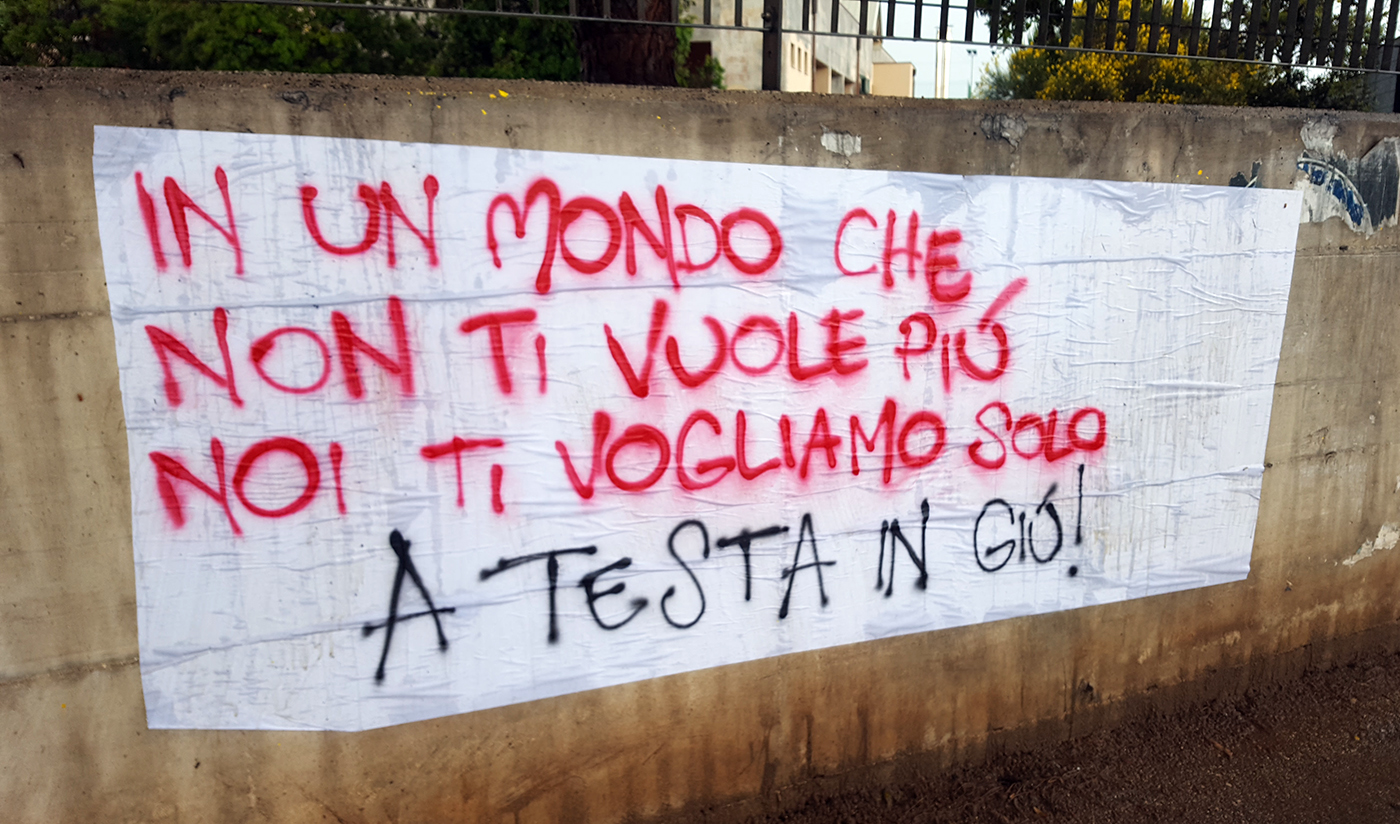 IN UN MONDO CHE
NON TI VUOLE PIÚ
NOI TI VOGLIAMO SOLO
A TESTA IN GIÚ!